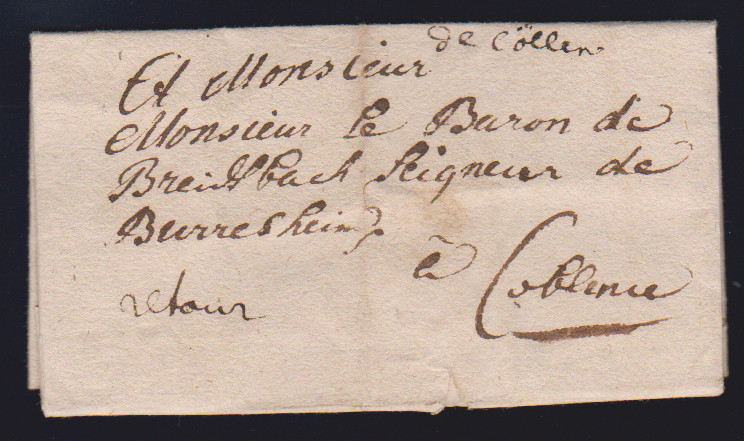 de Cöllen
A Monsieur
Monsieur le Baron de
Breidtbach Seigneur de
Burresheim
à Coblence
retour